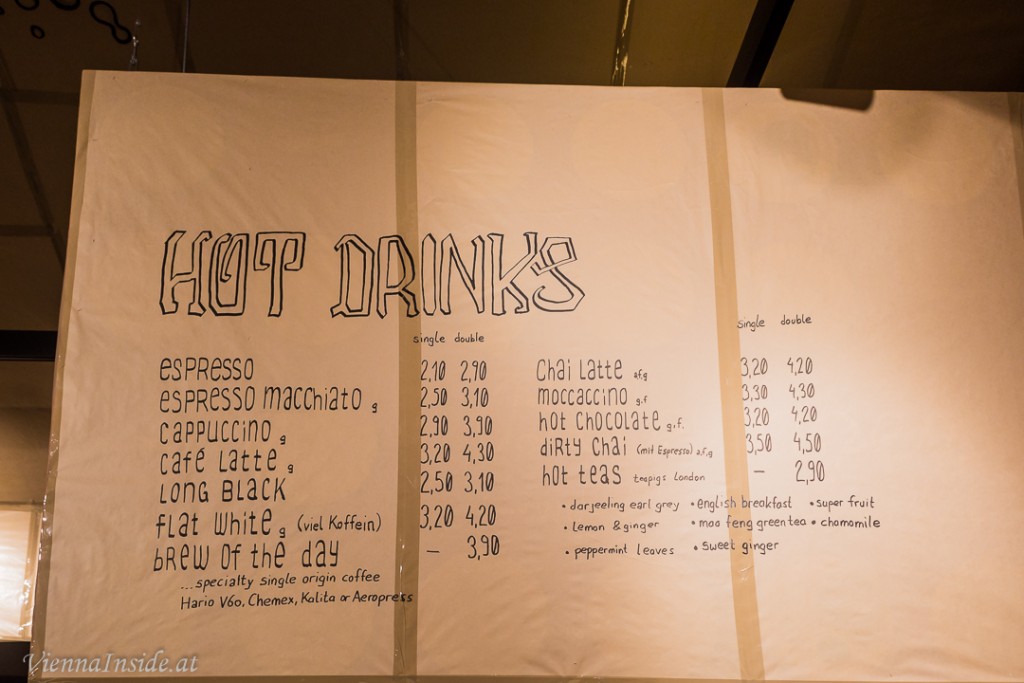 HOT DRINKS
single double
ESPRESSO 2,10 2,90
ESPRESSO Macchiato g 2,50 3,10
CAPPUCCINO g 2,90 3,90
Café Latte g 3,20 4,30
LONG BLACK 2,50 3,10
flat white g (viel Koffein) 3,20 4,20
BREW Of the day – 3,90
...specialty single origin coffee
Hario V60, Chemex, Kalita or Aeropress
single double
Chai Latte a,f,g 3,20 4,20
moccaccino g.f 3,30 4,30
hot chocolate g.f. 3,20 4,20
dirty chai (mit Espresso) a,f,g 3,50 4,50
hot teas teapigs London – 2,90
• darjeeling earl grey • english breakfast • super fruit
• Lemon & ginger • mao feng green tea • chamomile
• peppermint leaves • sweet ginger
ViennaInside.at